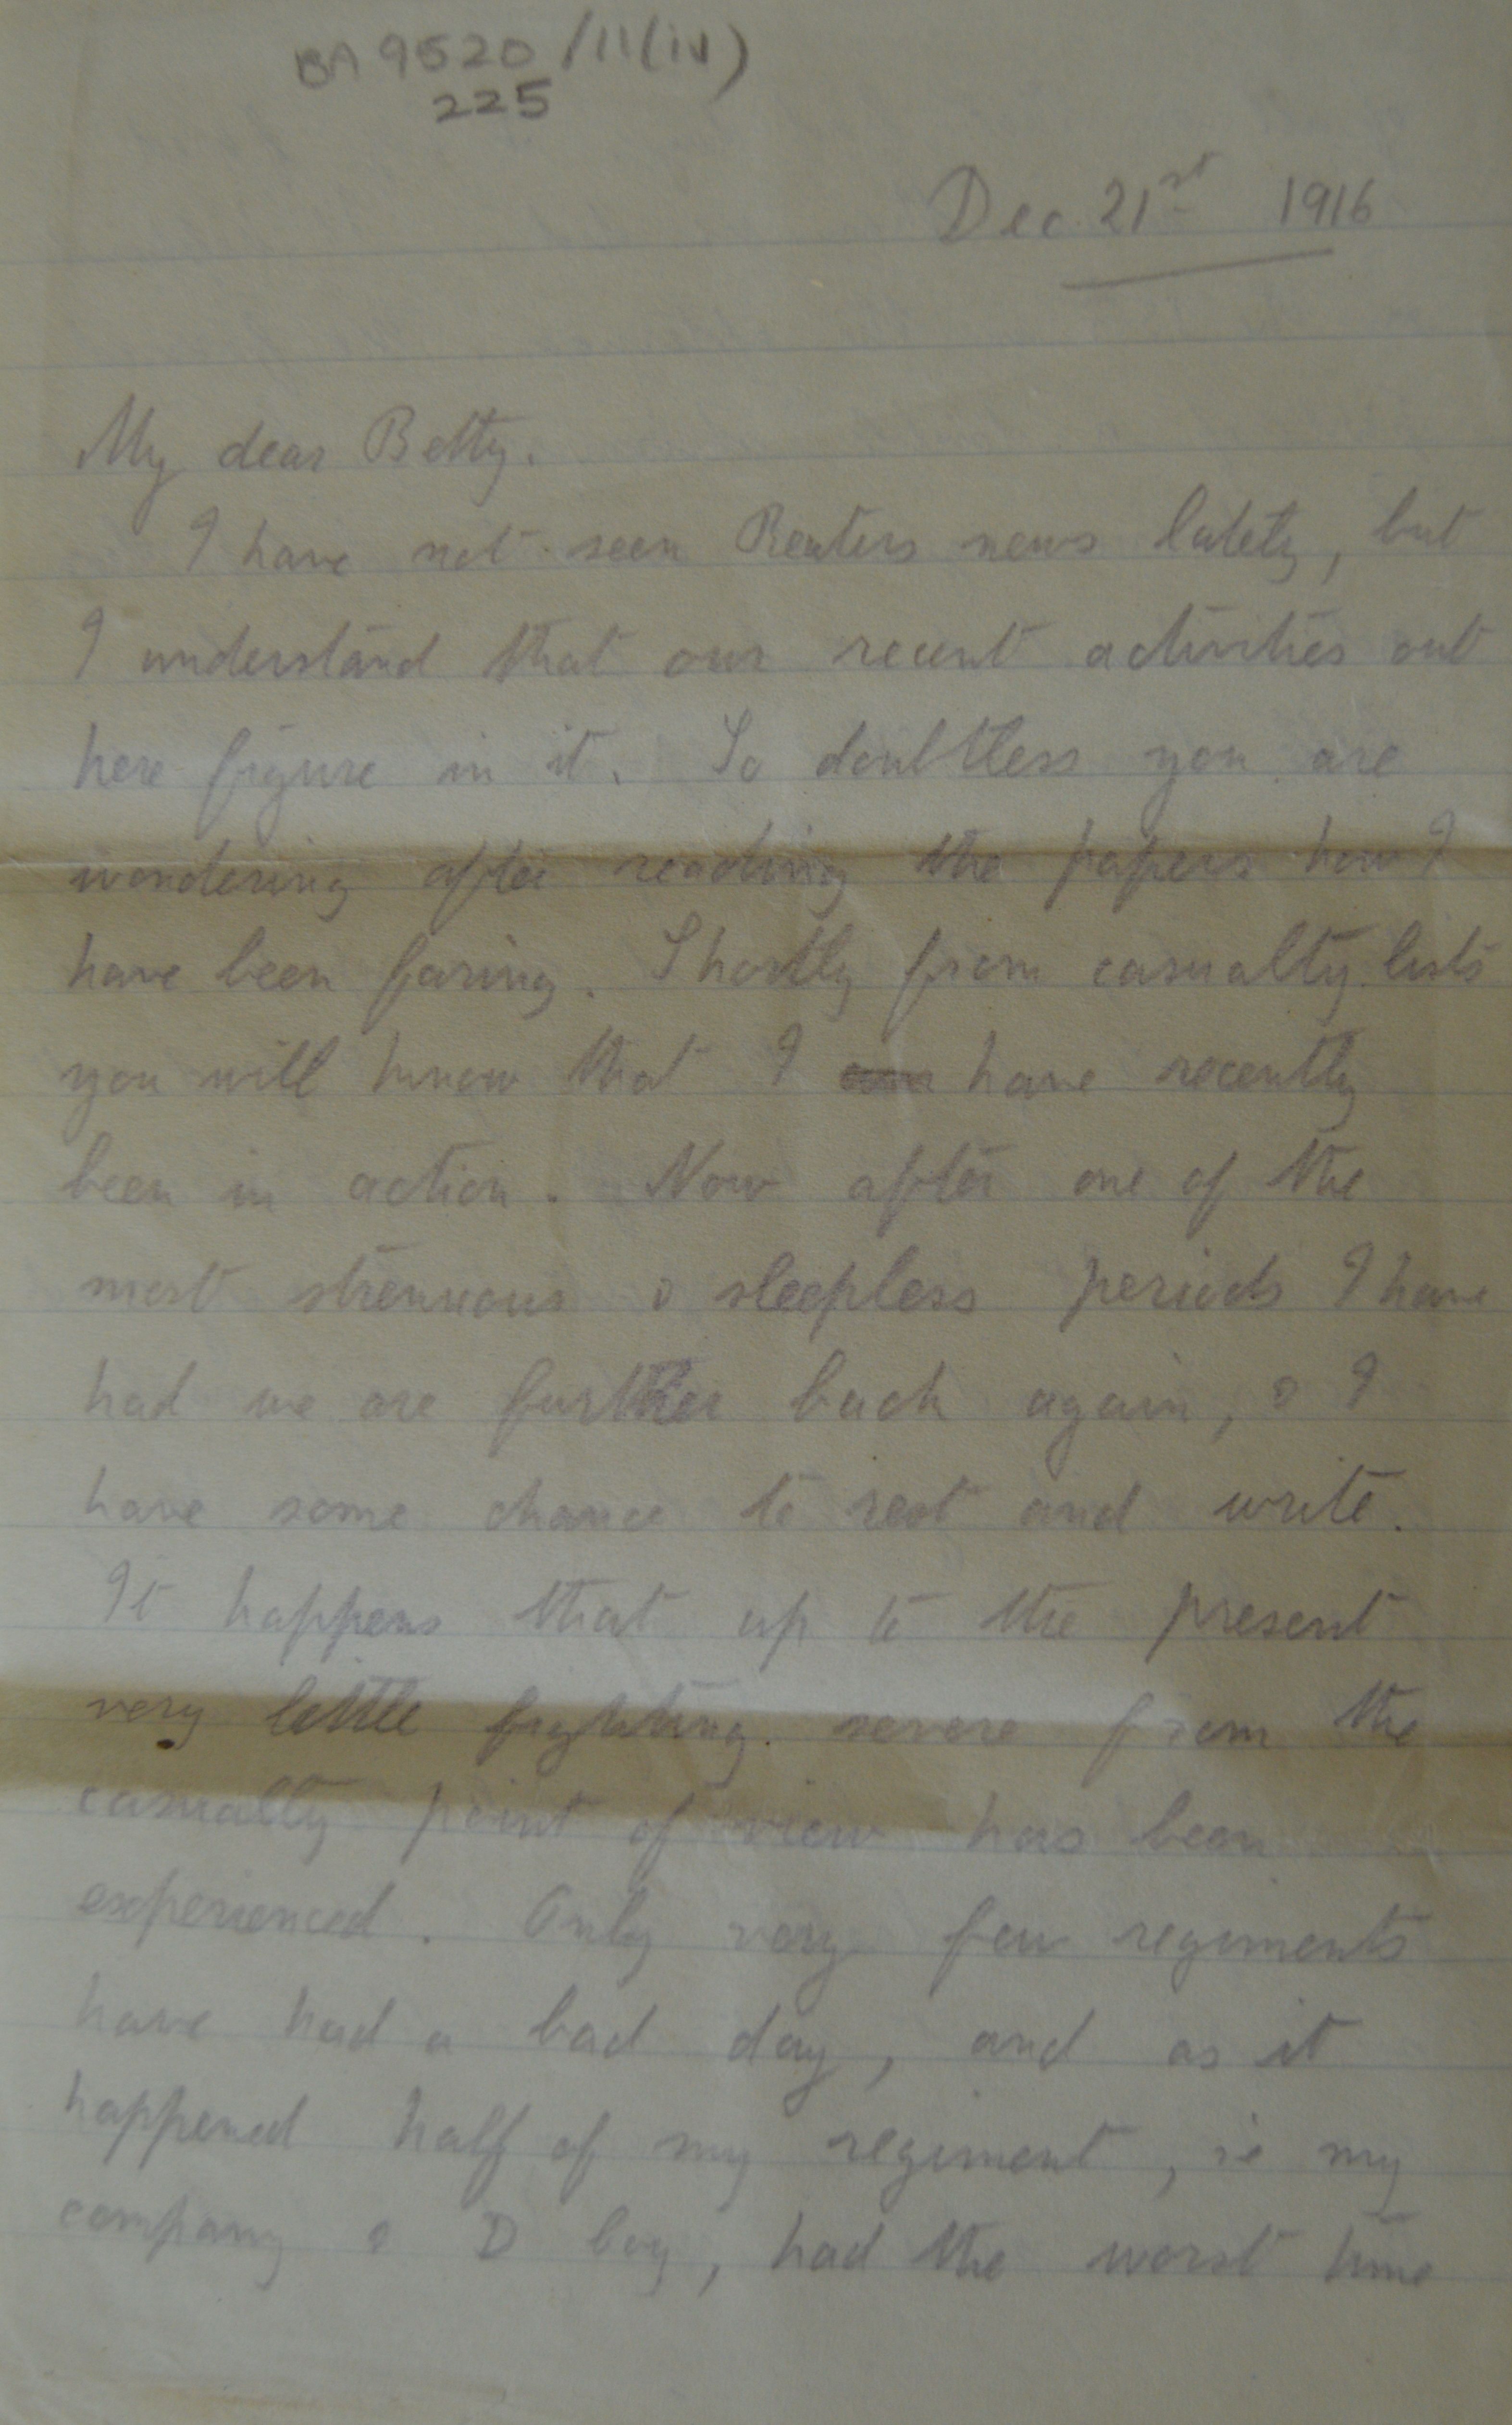 BA 9520/11(iv)
225
Dec. 21st 1916
My dear Betty.
I have not seen Reuters news lately, but
I understand that our recent activities out
here figure in it. So doubtless you are
wondering after reading the papers how I
have been faring. Shortly from casualty lists
you will know that I am have recently
been in action. Now after one of the
most strenuous & sleepless periods I have
had we are further back again, & I
have some chance to rest and write.
It happens that up to the present
very little fighting severe from the
casualty point of view has been
experienced. Only very few regiments
have had a bad day, and as it
happened half of my regiment, ie my
company & D Coy, had the worst time